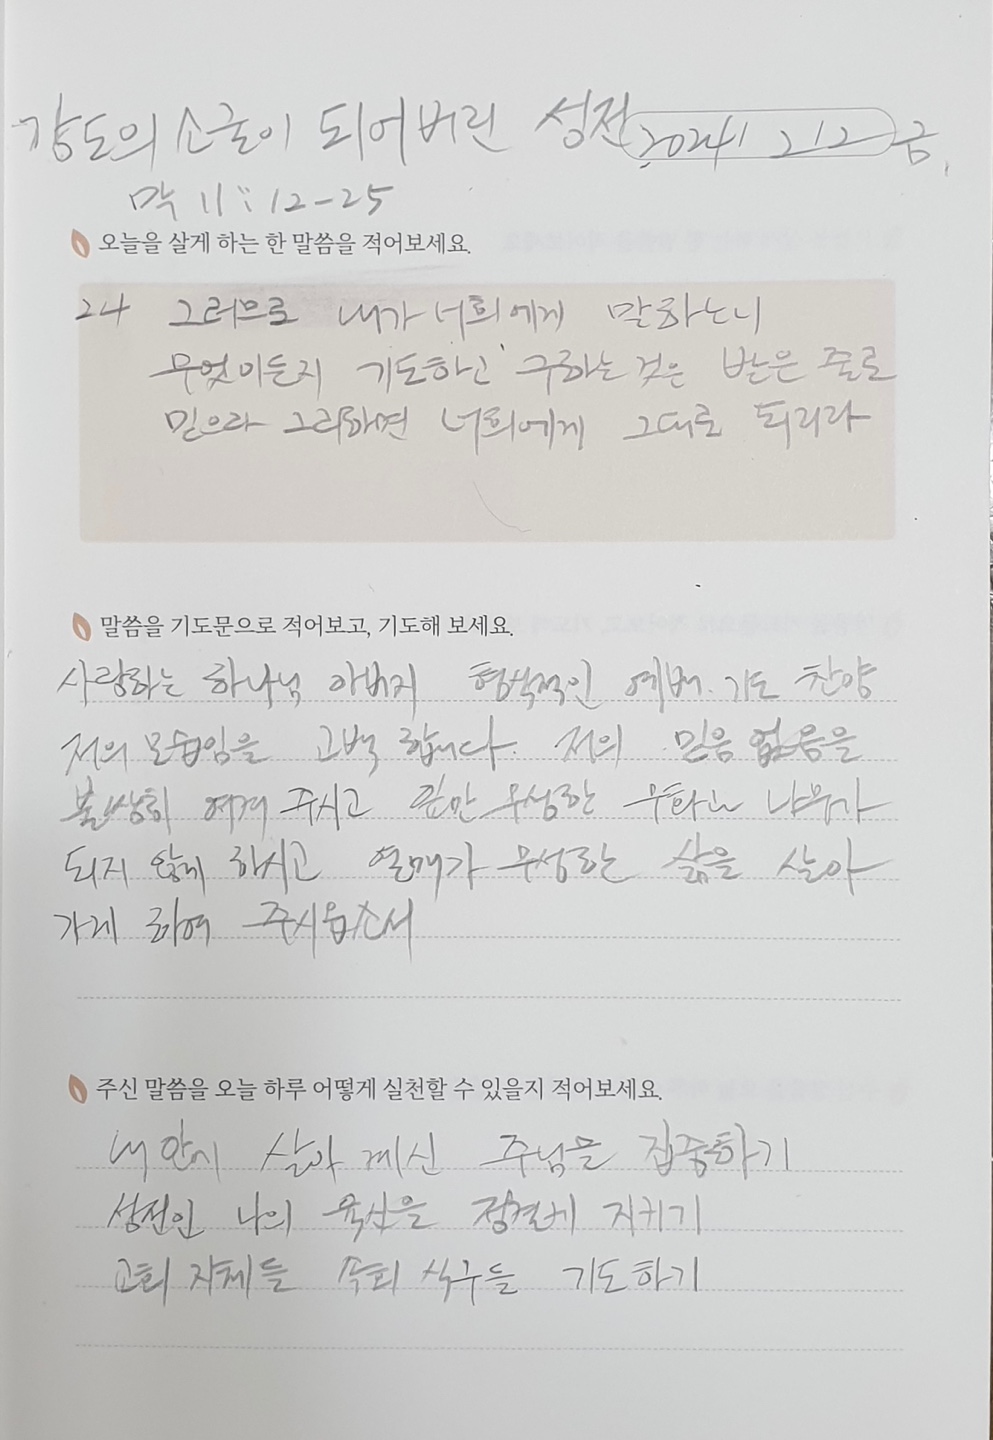 강도의 소굴이 되어버린 성전 2024 2/2 금.
막 11:12-25
오늘을 살게 하는 한 말씀을 적어보세요.
24 그러므로 내가 너희에게 말하노니
무엇이든지 기도하고 구하는 것은 받은 줄로
믿으라 그리하면 너희에게 그대로 되리라
말씀을 기도문으로 적어보고, 기도해 보세요.
사랑하는 하나님 아버지 형식적인 예배. 기도 찬양
저의 모습임을 고백 합니다. 저의 믿음 없음을
불쌍히 여겨 주시고 잎만 무성한 무화과 나무가
되지 않게 하시고 열매가 무성한 삶을 살아
가게 하여 주시옵소서
주신 말씀을 오늘 하루 어떻게 실천할 수 있을지 적어보세요.
내 안에 살아 계신 주님을 집중하기
성전인 나의 육신을 정결케 지키기
교회 지체들 속회 식구들 기도하기